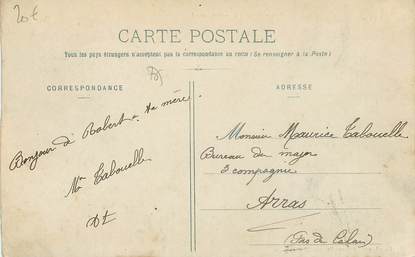 20€
CARTE POSTALE
Tous les pays étrangers n'acceptent pas la correspondance au recto (Se renseigner à la Poste)
CORRESPONDANCE
ADRESSE
Bonjour de Robert & sa mère
Mme Tabouelle
Monsieur Maurice Tabouelle
Bureau du major
3 compagnie
Arras
(Pas de Calais)